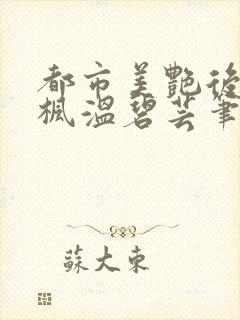 都市美艷後
楓溫碧芸筆
蘇大東